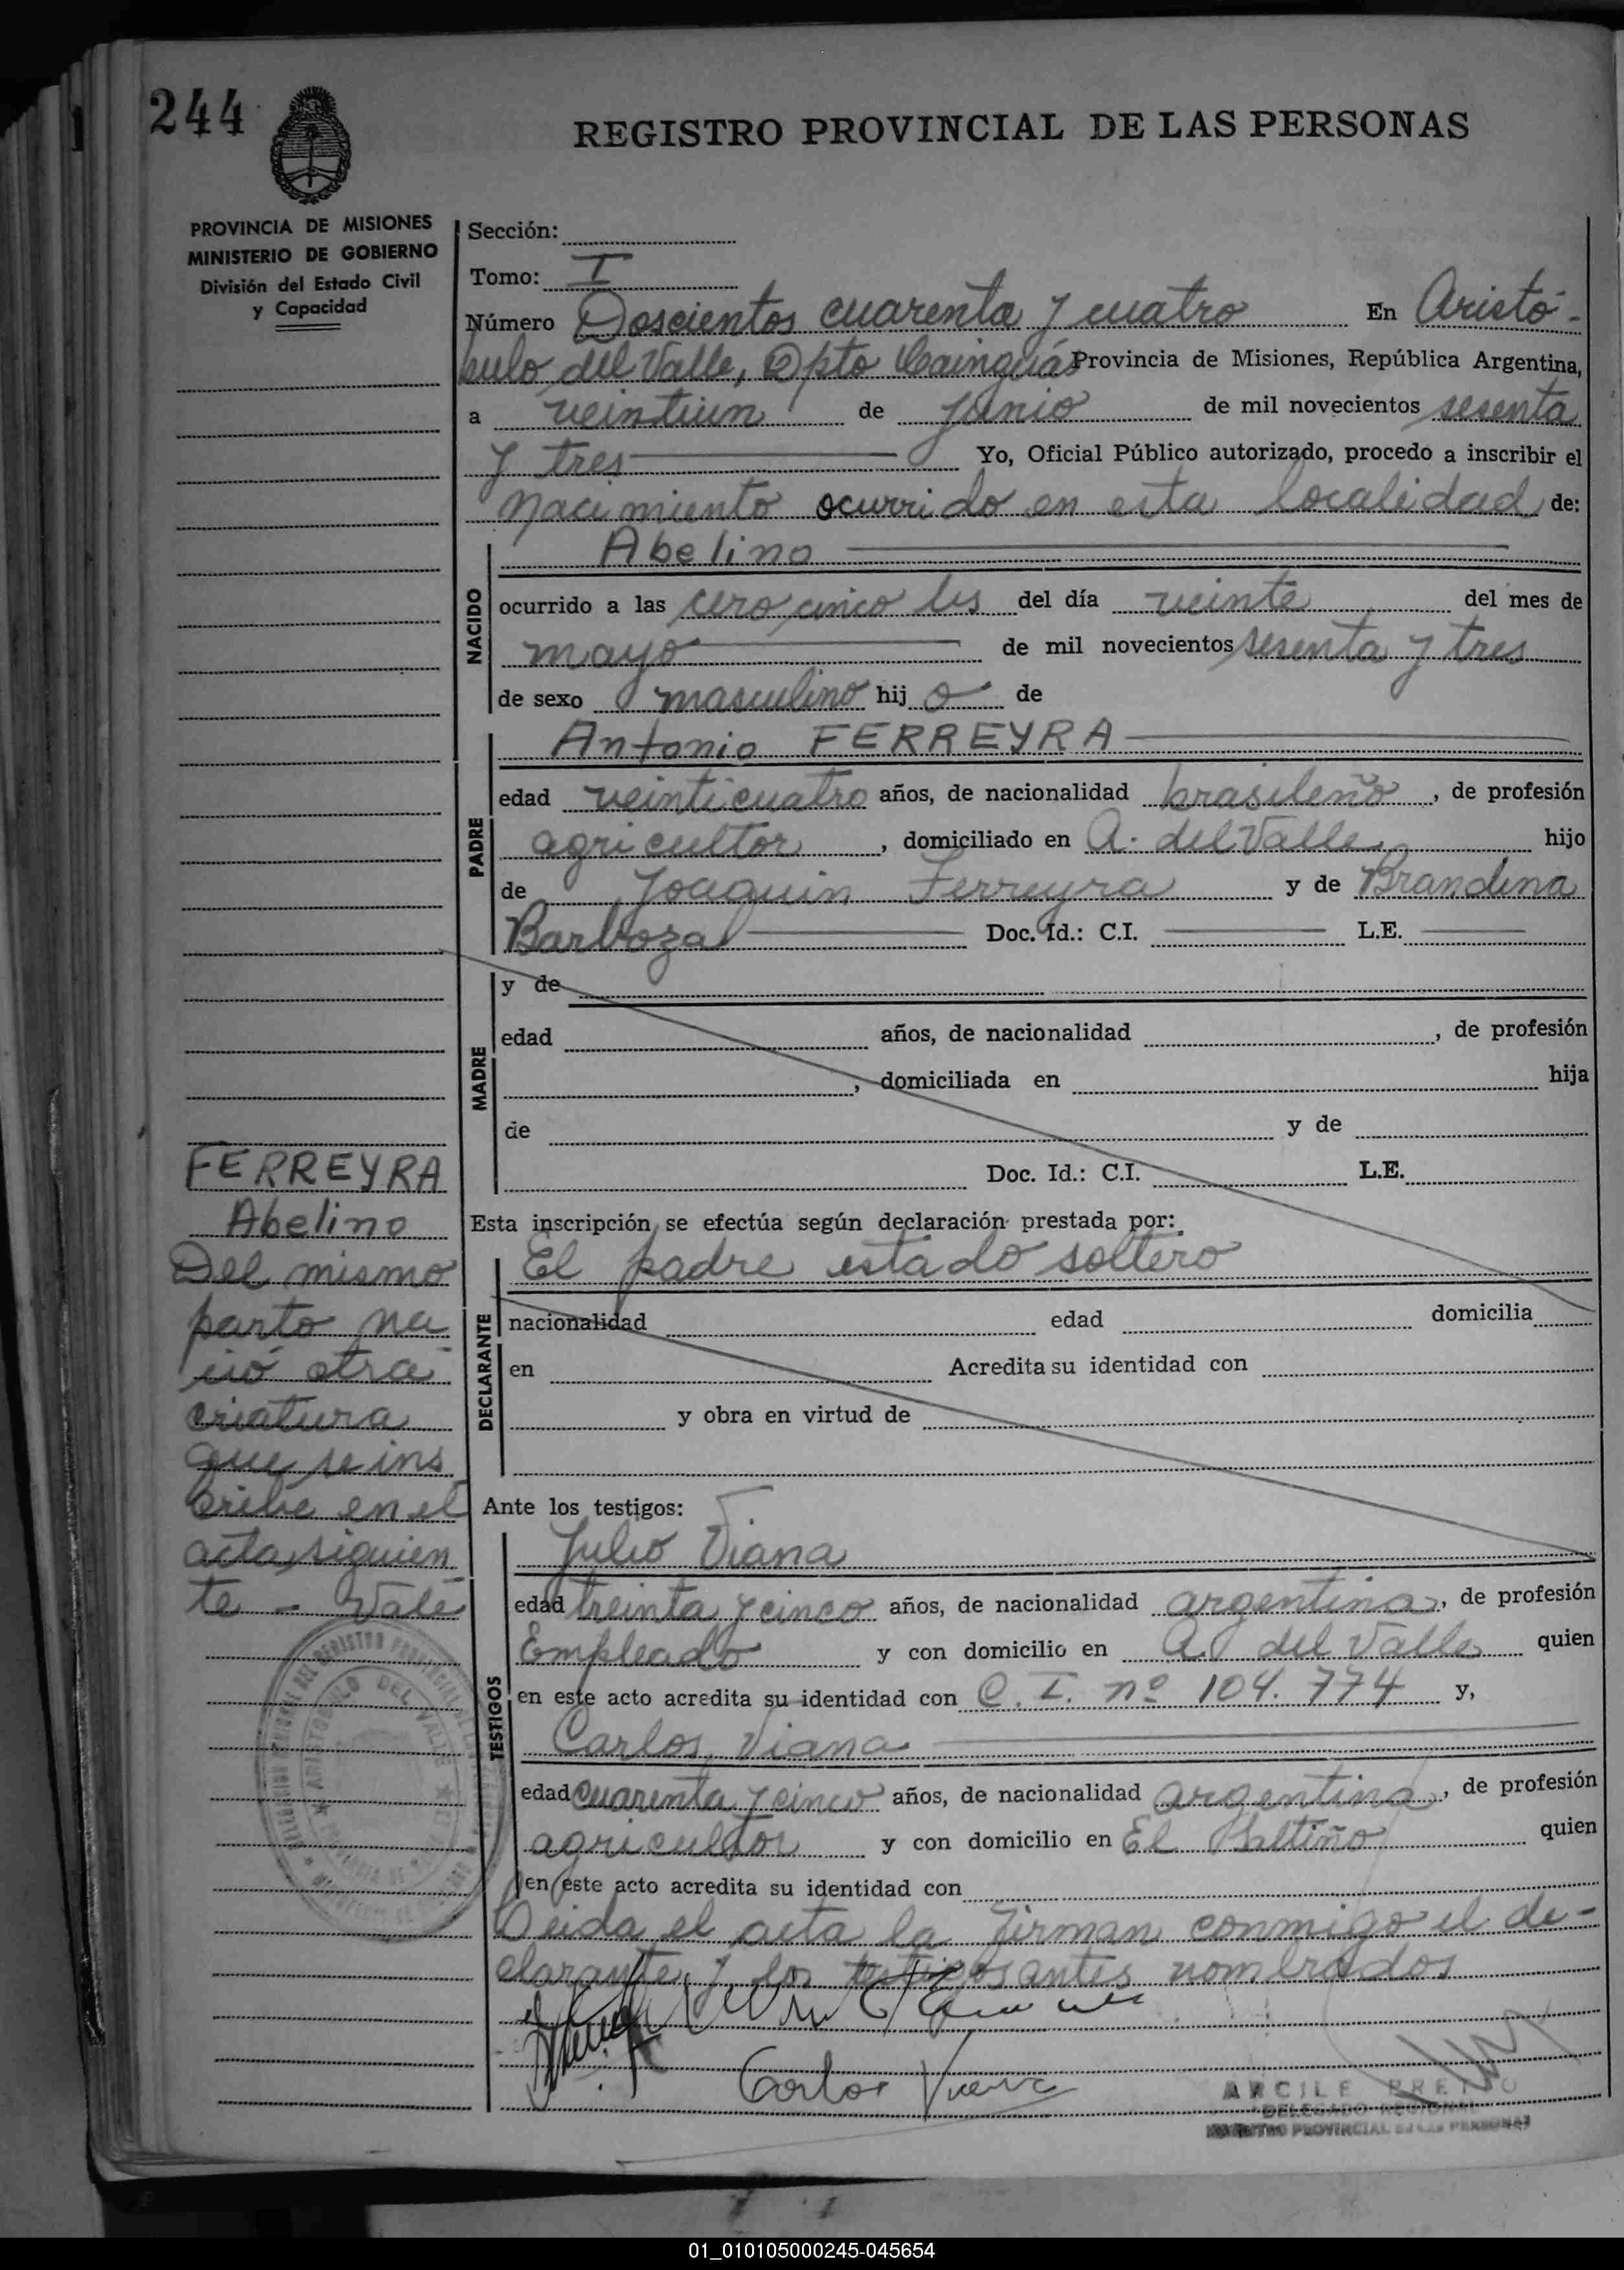 244
REGISTRO PROVINCIAL DE LAS PERSONAS
PROVINCIA DE MISIONES
MINISTERIO DE GOBIERNO
División del Estado Civil
y Capacidad
Sección:
Tomo: I
Número Doscientos cuarenta y cuatro En Aristó-
bulo del Valle, Dpto Cainguás Provincia de Misiones, República Argentina,
a veintiun de junio de mil novecientos sesenta
y tres Yo, Oficial Público autorizado, procedo a inscribir el
nacimiento ocurrido en esta localidad de:
NACIDO
Abelino
ocurrido a las cero cinco hs del día veinte del mes de
mayo de mil novecientos sesenta y tres
de sexo masculino hij o de
PADRE
Antonio FERREYRA
edad veinticuatro años, de nacionalidad brasileño, de profesión
agricultor, domiciliado en A. del Valle hijo
de Joaquin Ferreyra y de Brandina
Barboza Doc. Id.: C.I. L.E.
MADRE
y de
edad años, de nacionalidad , de profesión
, domiciliada en hija
de y de
Doc. Id.: C.I. L.E.
Esta inscripción se efectúa según declaración prestada por:
DECLARANTE
El padre estado soltero
nacionalidad edad domicilia
en Acredita su identidad con
y obra en virtud de
Ante los testigos:
TESTIGOS
Julio Viana
edad treinta y cinco años, de nacionalidad argentina, de profesión
Empleado y con domicilio en A. del Valle quien
en este acto acredita su identidad con C. I. nº 104.774 y,
Carlos Viana
edad cuarenta y cinco años, de nacionalidad argentina, de profesión
agricultor y con domicilio en El Saltiño quien
en este acto acredita su identidad con
Leida el acta la firman conmigo el de-
clarante y los testigos antes nombrados
Carlos Viana
ARCILE PREITO
DELEGADO REGIONAL
REGISTRO PROVINCIAL DE LAS PERSONAS
FERREYRA
Abelino
Del mismo
parto na
ció otra
criatura
que se ins
cribe en el
acta siguien
te - Vale
ARISTOBULO DEL VALLE
01_010105000245-045654